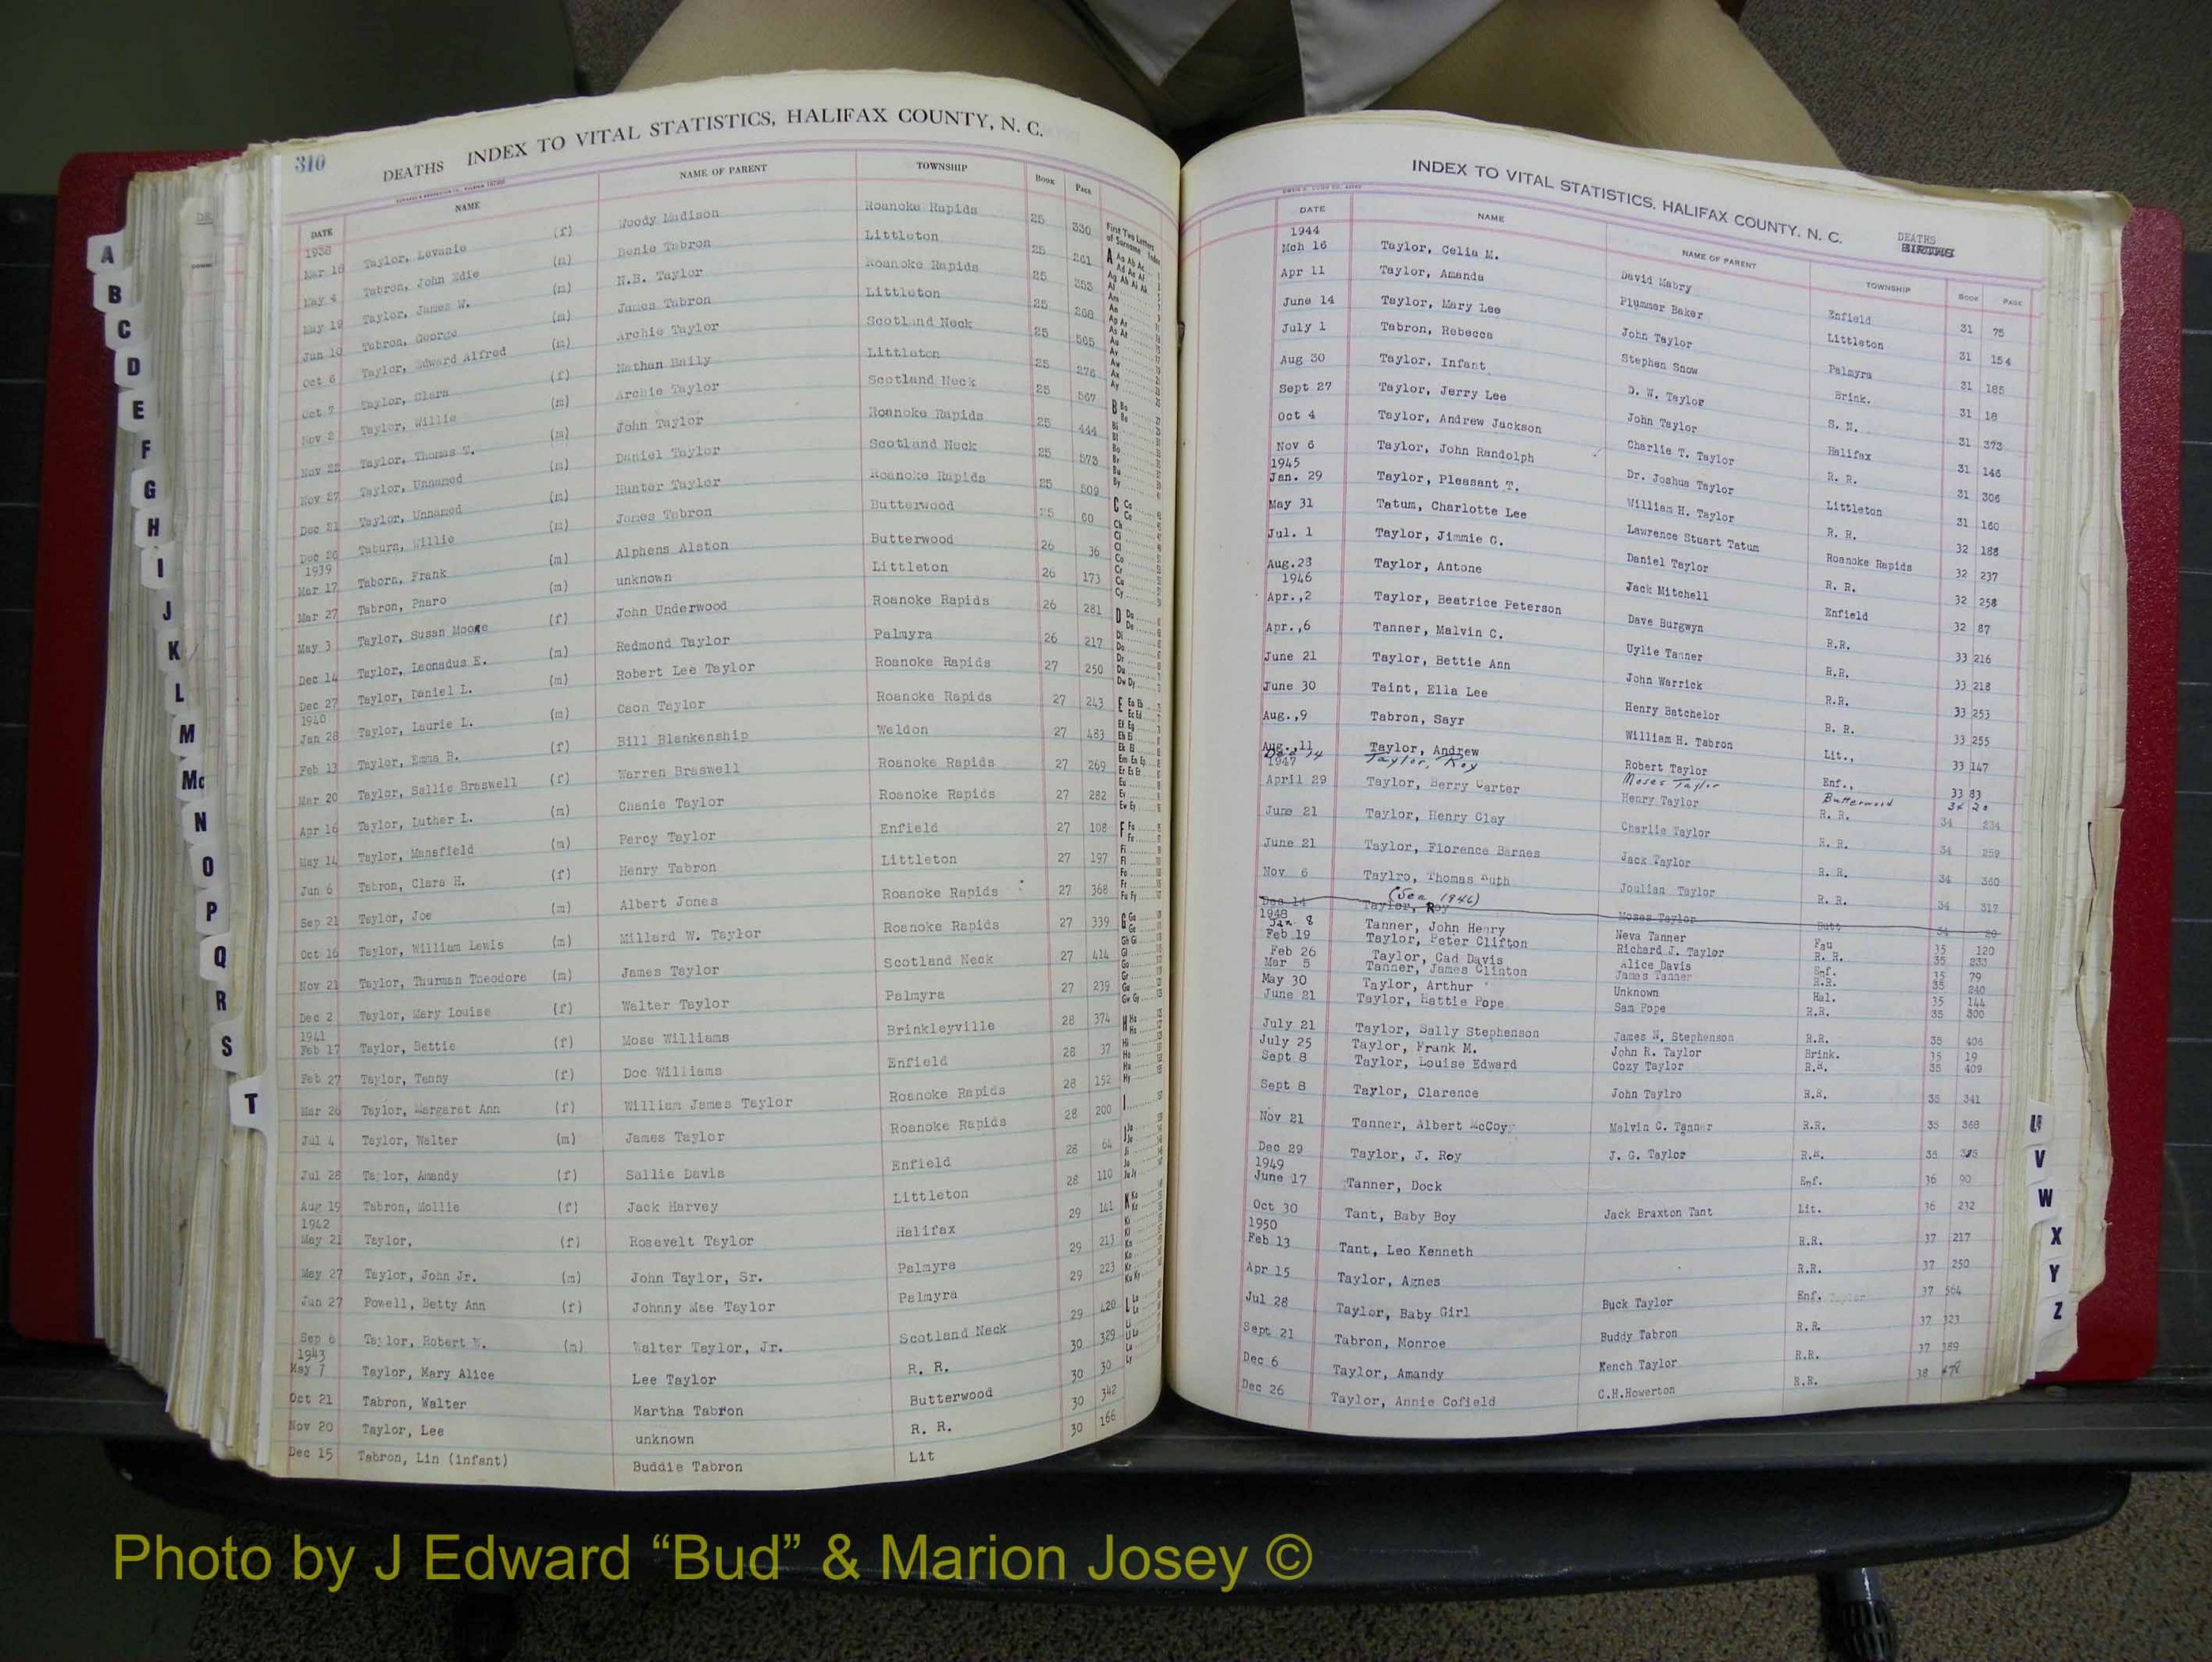 310
DEATHS INDEX TO VITAL STATISTICS, HALIFAX COUNTY, N. C.
DATE NAME NAME OF PARENT TOWNSHIP BOOK PAGE
1938
Mar 18 Taylor, Levanie (f) Woody Madison Roanoke Rapids 25 330
May 4 Tabron, John Edie (m) Benie Tabron Littleton 25 261
May 19 Taylor, James W. (m) N.B. Taylor Roanoke Rapids 25 353
Jun 10 Tabron, George (m) James Tabron Littleton 25 268
Oct 6 Taylor, Edward Alfred (m) Archie Taylor Scotland Neck 25 565
Oct 7 Taylor, Clara (f) Nathan Baily Littleton 25 276
Nov 2 Taylor, Willie (m) Archie Taylor Scotland Neck 25 567
Nov 22 Taylor, Thomas T. (m) John Taylor Roanoke Rapids 25 444
Nov 27 Taylor, Unnamed (m) Daniel Taylor Scotland Neck 25 573
Dec 21 Taylor, Unnamed (m) Hunter Taylor Roanoke Rapids 25 509
Dec 26 Taburn, Willie (m) James Tabron Butterwood 25 60
1939
Mar 17 Taborn, Frank (m) Alphens Alston Butterwood 26 36
Mar 27 Tabron, Pharo (m) unknown Littleton 26 173
May 3 Taylor, Susan Moore (f) John Underwood Roanoke Rapids 26 281
Dec 14 Taylor, Leonadus E. (m) Redmond Taylor Palmyra 26 217
Dec 27 Taylor, Daniel L. (m) Robert Lee Taylor Roanoke Rapids 27 250
1940
Jan 28 Taylor, Laurie L. (m) Caon Taylor Roanoke Rapids 27 243
Feb 13 Taylor, Emma B. (f) Bill Blankenship Weldon 27 483
Mar 20 Taylor, Sallie Braswell (f) Warren Braswell Roanoke Rapids 27 269
Apr 16 Taylor, Luther L. (m) Chanie Taylor Roanoke Rapids 27 282
May 14 Taylor, Mansfield (m) Percy Taylor Enfield 27 108
Jun 6 Tabron, Clara H. (f) Henry Tabron Littleton 27 197
Sep 21 Taylor, Joe (m) Albert Jones Roanoke Rapids 27 368
Oct 16 Taylor, William Lewis (m) Millard W. Taylor Roanoke Rapids 27 339
Nov 21 Taylor, Thurman Theodore (m) James Taylor Scotland Neck 27 414
Dec 2 Taylor, Mary Louise (f) Walter Taylor Palmyra 27 239
1941
Feb 17 Taylor, Bettie (f) Mose Williams Brinkleyville 28 374
Feb 27 Taylor, Tenny (f) Doc Williams Enfield 28 37
Mar 26 Taylor, Margaret Ann (f) William James Taylor Roanoke Rapids 28 152
Jul 4 Taylor, Walter (m) James Taylor Roanoke Rapids 28 200
Jul 28 Taylor, Amandy (f) Sallie Davis Enfield 28 64
Aug 19 Tabron, Mollie (f) Jack Harvey Littleton 28 110
1942
May 21 Taylor, (f) Rosevelt Taylor Halifax 29 141
May 27 Taylor, John Jr. (m) John Taylor, Sr. Palmyra 29 213
Jun 27 Powell, Betty Ann (f) Johnny Mae Taylor Palmyra 29 223
Sep 6 Taylor, Robert W. (m) Walter Taylor, Jr. Scotland Neck 29 420
1943
May 7 Taylor, Mary Alice Lee Taylor R. R. 30 329
Oct 21 Tabron, Walter Martha Tabron Butterwood 30 30
Nov 20 Taylor, Lee unknown R. R. 30 342
Dec 15 Tabron, Lin (infant) Buddie Tabron Lit 30 166
First Two Letters of Surname Index
A B C D E F G H I J K L M Mc N O P Q R S T
INDEX TO VITAL STATISTICS, HALIFAX COUNTY, N. C. DEATHS
DATE NAME NAME OF PARENT TOWNSHIP BOOK PAGE
1944
Mch 16 Taylor, Celia M. David Mabry Enfield 31 75
Apr 11 Taylor, Amanda Plummer Baker Littleton 31 154
June 14 Taylor, Mary Lee John Taylor Palmyra 31 185
July 1 Tabron, Rebecca Stephen Snow Brink. 31 18
Aug 30 Taylor, Infant D. W. Taylor S. N. 31 373
Sept 27 Taylor, Jerry Lee John Taylor Halifax 31 146
Oct 4 Taylor, Andrew Jackson Charlie T. Taylor R. R. 31 306
Nov 6 Taylor, John Randolph Dr. Joshua Taylor Littleton 31 160
1945
Jan. 29 Taylor, Pleasant T. William H. Taylor R. R. 32 188
May 31 Tatum, Charlotte Lee Lawrence Stuart Tatum Roanoke Rapids 32 237
Jul. 1 Taylor, Jimmie G. Daniel Taylor R. R. 32 258
Aug.23 Taylor, Antone Jack Mitchell Enfield 32 87
1946
Apr.,2 Taylor, Beatrice Peterson Dave Burgwyn R.R. 33 216
Apr.,6 Tanner, Malvin C. Uylie Tanner R.R. 33 218
June 21 Taylor, Bettie Ann John Warrick R.R. 33 253
June 30 Taint, Ella Lee Henry Batchelor R. R. 33 255
Aug.,9 Tabron, Sayr William H. Tabron Lit., 33 147
Aug.,11 Taylor, Andrew Robert Taylor Enf., 33 83
Dec 14 Taylor, Roy Moses Taylor Butterwood 34 20
1947
April 29 Taylor, Berry Carter Henry Taylor R. R. 34 234
June 21 Taylor, Henry Clay Charlie Taylor R. R. 34 259
June 21 Taylor, Florence Barnes Jack Taylor R. R. 34 360
Nov 6 Taylro, Thomas Ruth Joulian Taylor R. R. 34 317
(See 1946)
Dec 14 Taylor, Roy Moses Taylor Butt 34 20
1948
Jan 8 Tanner, John Henry Neva Tanner Fau 35 120
Feb 19 Taylor, Peter Clifton Richard J. Taylor R. R. 35 233
Feb 26 Taylor, Cad Davis Alice Davis Enf. 35 79
Mar 5 Tanner, James Clinton James Tanner R.R. 35 240
May 30 Taylor, Arthur Unknown Hal. 35 144
June 21 Taylor, Hattie Pope Sam Pope R.R. 35 300
July 21 Taylor, Sally Stephenson James N. Stephenson R.R. 35 406
July 25 Taylor, Frank M. John R. Taylor Brink. 35 19
Sept 8 Taylor, Louise Edward Cozy Taylor R.R. 35 409
Sept 8 Taylor, Clarence John Taylro R.R. 35 341
Nov 21 Tanner, Albert McCoy Malvin C. Tanner R.R. 35 368
Dec 29 Taylor, J. Roy J. G. Taylor R.R. 35
1949
June 17 Tanner, Dock Enf. 36 90
Oct 30 Tant, Baby Boy Jack Braxton Tant Lit. 36 232
1950
Feb 13 Tant, Leo Kenneth R.R. 37 217
Apr 15 Taylor, Agnes R.R. 37 250
Jul 28 Taylor, Baby Girl Buck Taylor Enf. 37 564
Sept 21 Tabron, Monroe Buddy Tabron R.R. 37 323
Dec 6 Taylor, Amandy Kench Taylor R.R. 37 389
Dec 26 Taylor, Annie Cofield C.H.Howerton R.R. 38 478
U V W X Y Z
Photo by J Edward “Bud” & Marion Josey ©